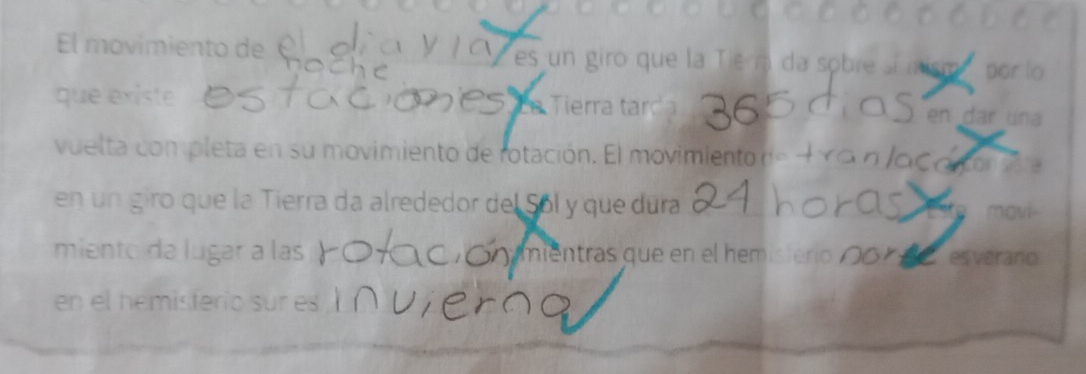 El movimiento de el dia y la noche es un giro que la Tierra da sobre sí misma por lo
que existe estaciones La Tierra tarda 365 dias en dar una
vuelta completa en su movimiento de rotación. El movimiento de tranlación
en un giro que la Tierra da alrededor del Sol y que dura 24 horas Este movi-
miento da lugar a las rotación, mientras que en el hemisferio norte es verano
en el hemisferio sur es invierno